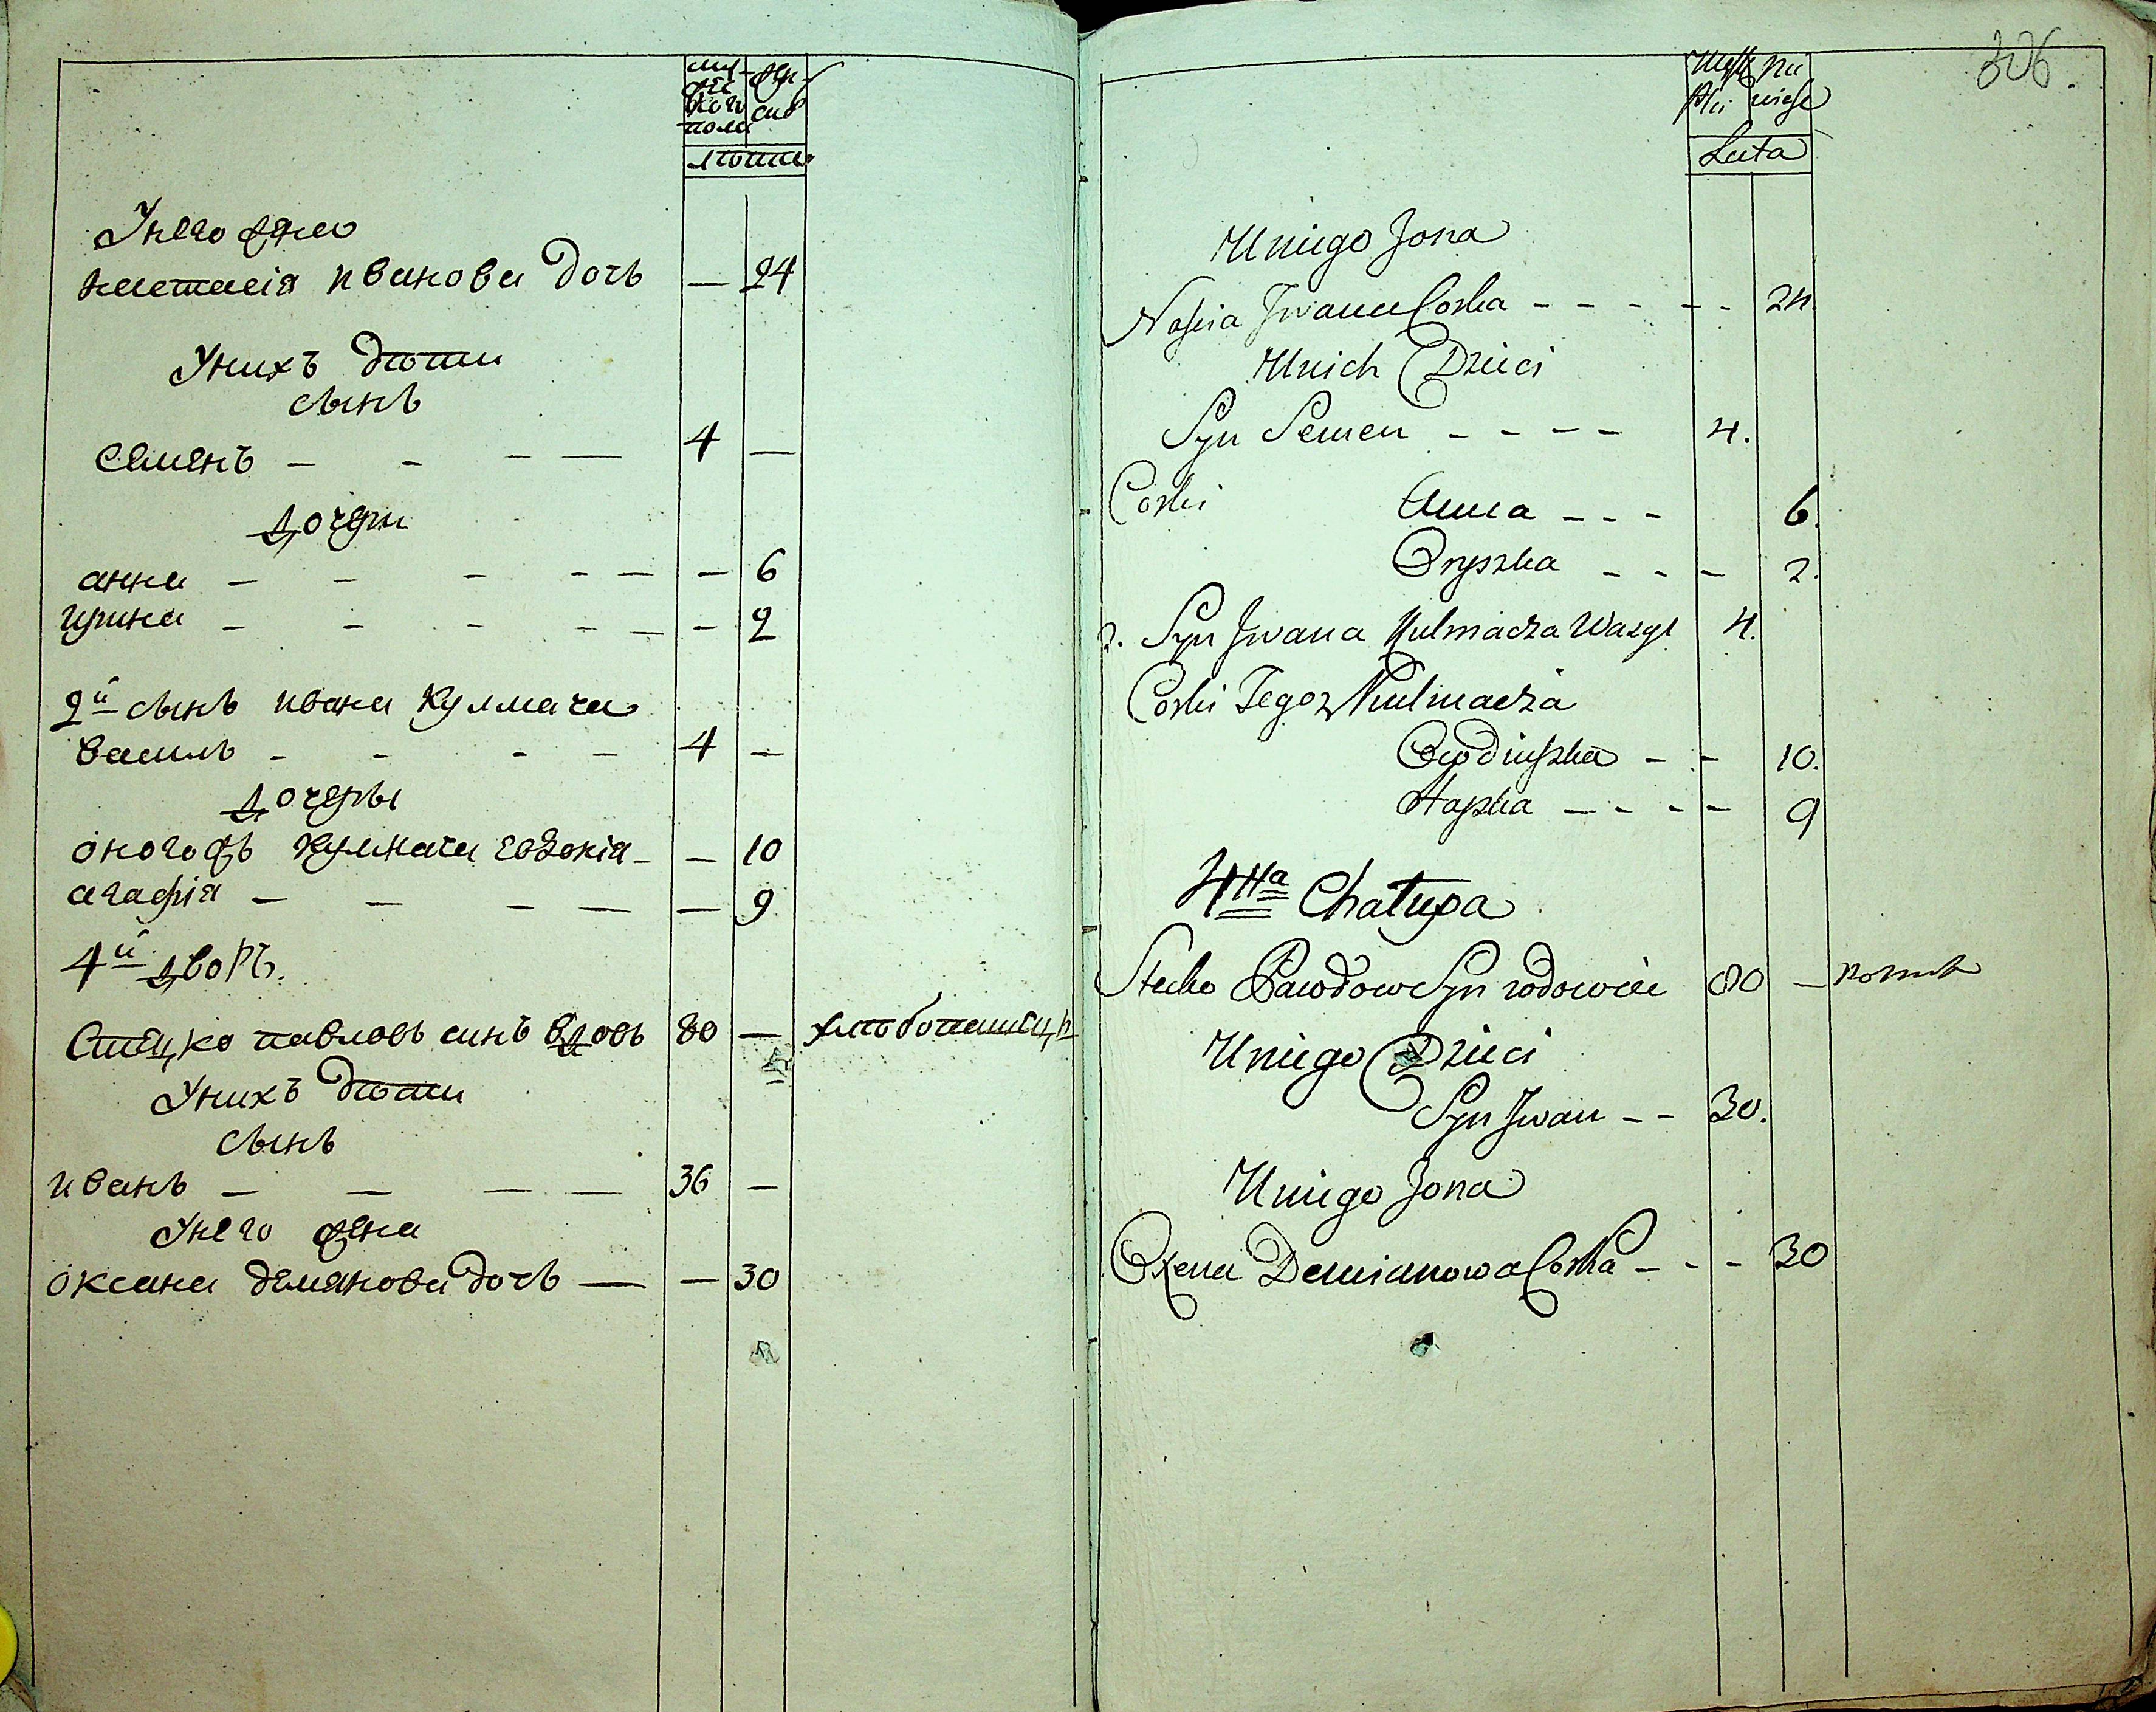 муже
ско
пола
жен
ска
лѣта
У него жена
настасія иванова дочь — 24
У нихъ дѣти
сынъ
семенъ — — — — 4 —
дочери
анна — — — — — — 6
ирина — — — — — — 2
2й сынъ ивана кулмача
василь — — — — 4 —
дочеры
оногожъ кулмача евдокія — — 10
агафія — — — — — 9
4й дворъ.
стецко павловъ синъ вдовъ 80 — хлѣбопашецъ
У нихъ дѣти
сынъ
иванъ — — — — 36 —
У него жена
оксана демянова дочь — — 30
306.
Lata
U niego Żona
Nascia Jwana Corka - - - - - 24.
U nich Dzieci
Syn Semen - - - - 4.
Corki Anna - - - 6.
Oryszka - - - 2.
2. Syn Jwana Kulmacza Wasyl 4.
Corki Tegoz Kulmacza
Owdiuszka - - 10.
Hapka - - - - 9
4ta Chałupa
Stecko Pawłow Syn wdowiec 80 — rolnik
U niego Dzieci
Syn Jwan - - 30.
U niego Żona
Oxena Demianowa Corka - - - 30